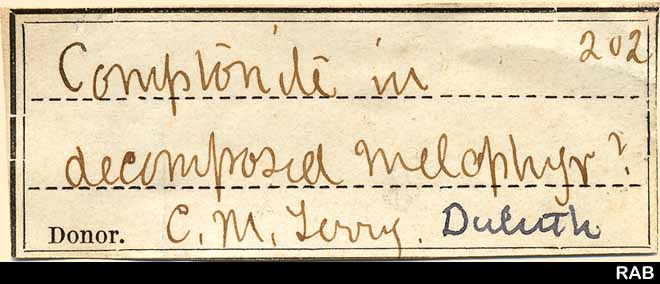 202
Comptonite in
decomposed melaphyr?
Donor. C. M. Terry. Duluth
RAB